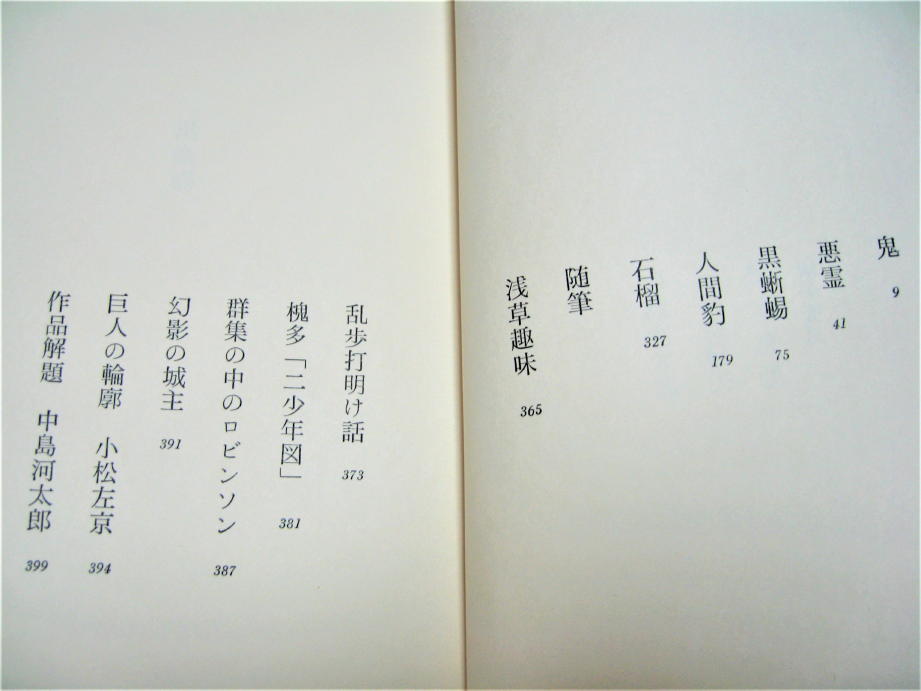 鬼 9
悪霊 41
黒蜥蜴 75
人間豹 179
石榴 327
随筆
浅草趣味 365
乱歩打明け話 373
槐多「二少年図」 381
群集の中のロビンソン 387
幻影の城主 391
巨人の輪廓 小松左京 394
作品解題 中島河太郎 399